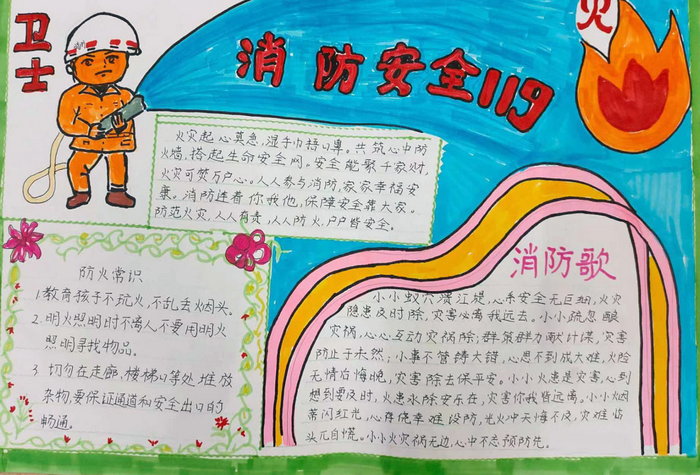 卫士
消防安全119
火
火灾起心莫急,湿手巾捂口鼻。共筑心中防
火墙,搭起生命安全网。安全能聚千家财,
火灾可焚万户心。人人参与消防,家家幸福安
康。消防连着你我他,保障安全靠大家。
防范火灾,人人有责,人人防火,户户皆安全。
防火常识
1.教育孩子不玩火,不乱丢烟头。
2.明火照明时不离人不要用明火
照明寻找物品。
3.切勿在走廊、楼梯口等处堆放
杂物,要保证通道和安全出口的
畅通。
消防歌
小小蚁穴溃江堤,心系安全无巨细,火灾
隐患及时除,灾害必离我远去。小小疏忽酿
灾祸,心心互动灾祸除;群策群力献计谋,灾害
防止于未然;小事不管铸大错,心思不到成大难,火险
无情后悔晚,灾害除去保平安。小小火患是灾害,心到
想到要及时,火患水除安乐在,灾害你我皆远离。小小烟
蒂闪红光,心存侥幸难设防,光火冲天悔不及,灾难
头兀自慌。小小火灾祸无边,心中不忘预防先。